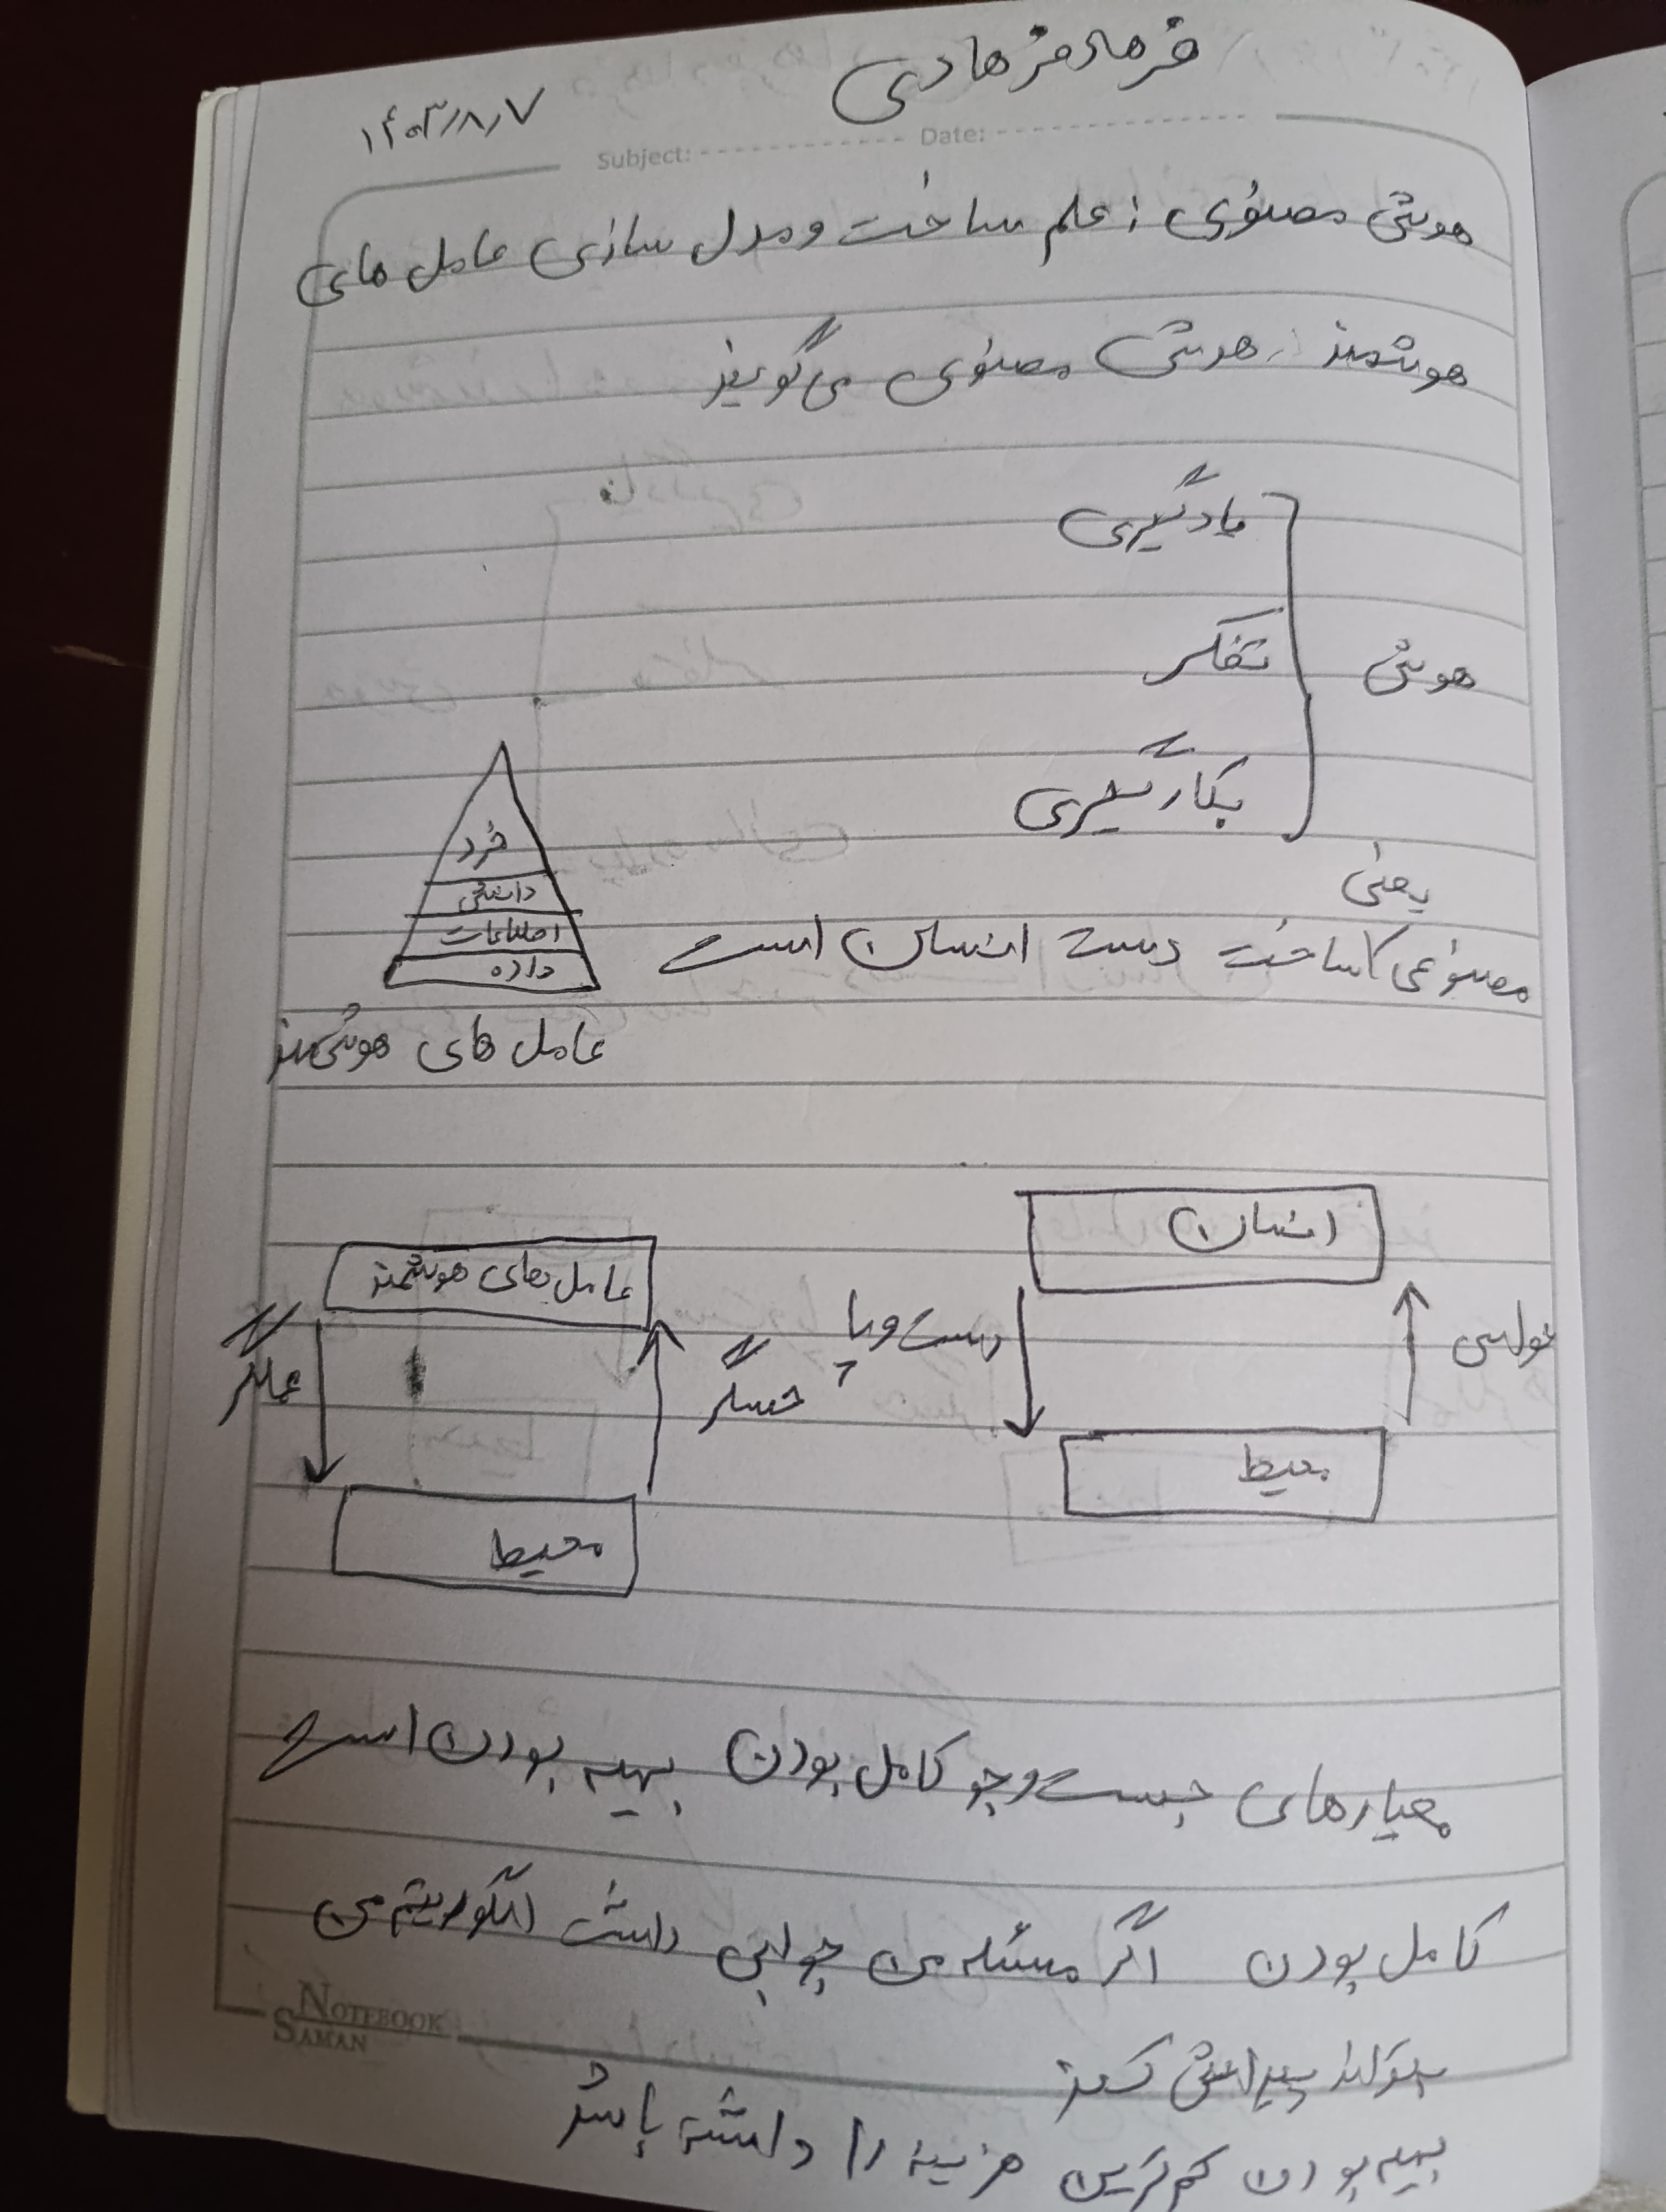 فرهاد فرهادی
۱۴۰۳/۸/۷
Subject: Date:
هوش مصنوی : علم ساخت و مدل سازی عامل های
هوشمند هوش مصنوی می گویند
یادگیری
هوش تفکر
بکارگیری
یعنی
مصنوعی ساخت دست انسان است
خرد
دانش
اطلاعات
داده
عامل های هوش مند
انسان
عامل های هوشمند
دست و پا
حسگر
عملگر
محیط
محیط
معیارهای جست و جو کامل بودن بهینه بودن است
کامل بودن اگر مسئله من جوابی داشت الگوریتم من
بتواند پیدایش کند
بهینه بودن کم ترین هزینه را داشته باشد
NOTEBOOK
SAMAN